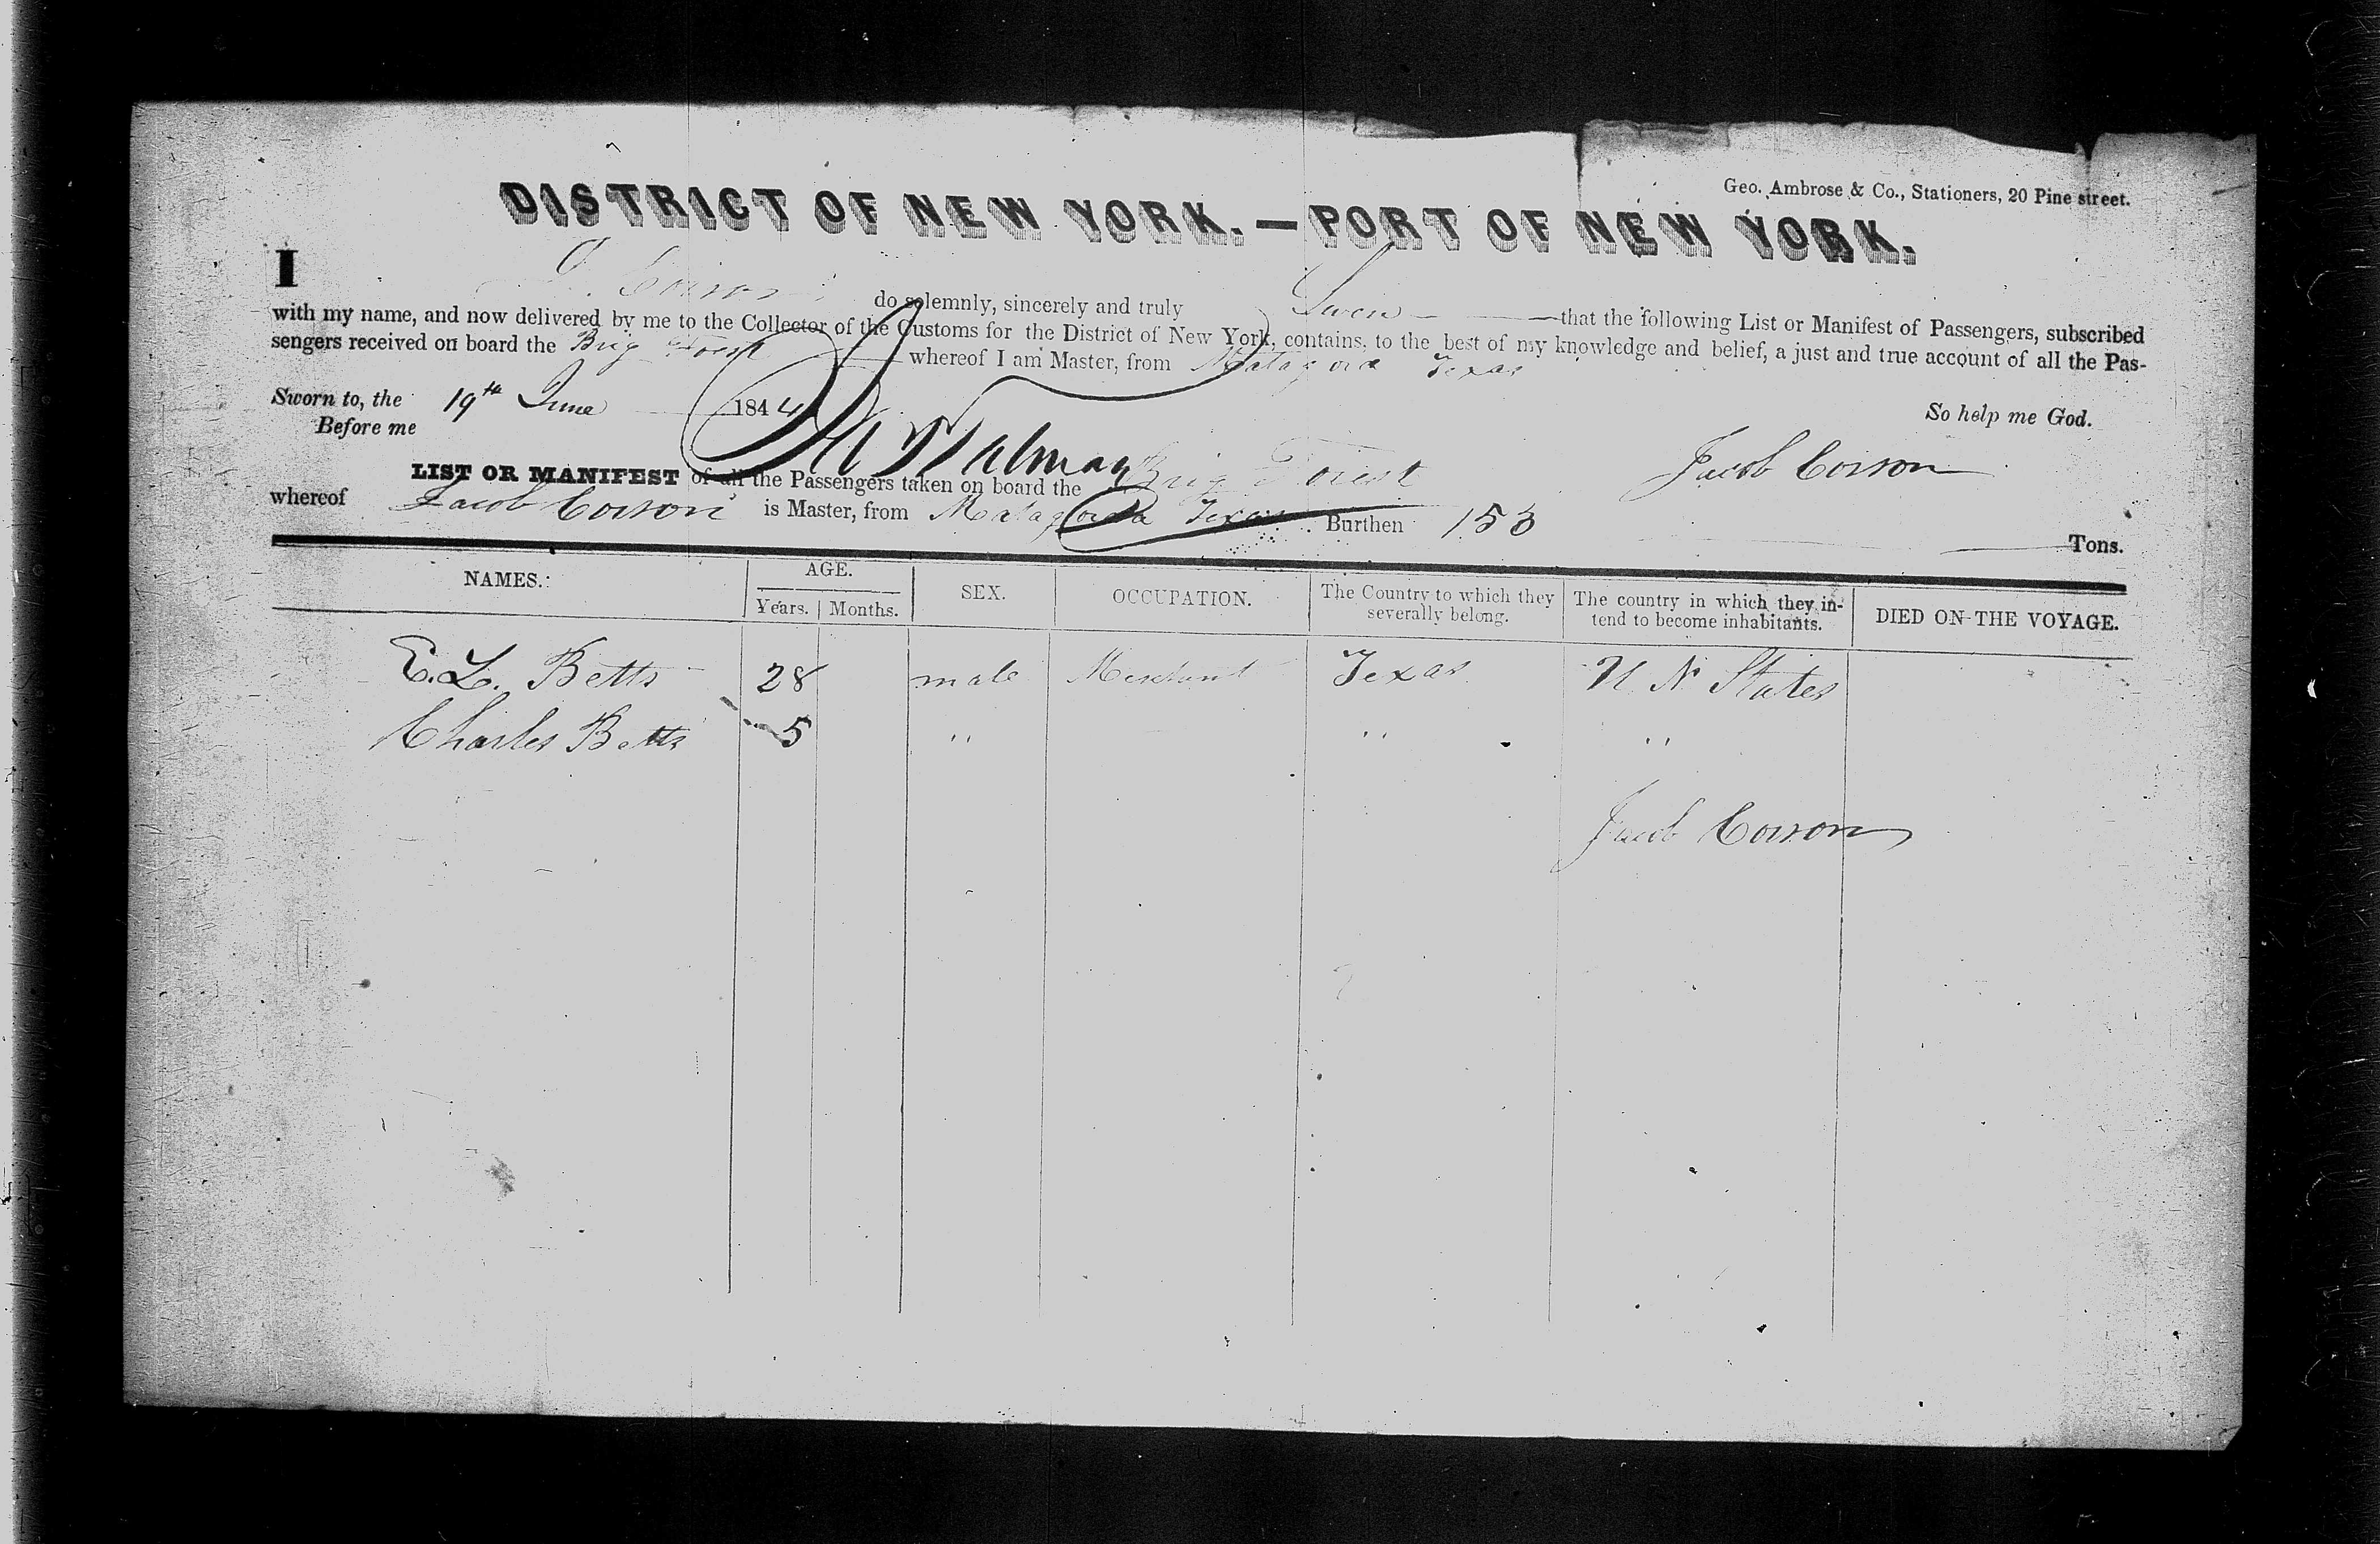 Geo. Ambrose & Co., Stationers, 20 Pine street.
DISTRICT OF NEW YORK.—PORT OF NEW YORK.
I J. Corson do solemnly, sincerely and truly Swear that the following List or Manifest of Passengers, subscribed
with my name, and now delivered by me to the Collector of the Customs for the District of New York, contains, to the best of my knowledge and belief, a just and true account of all the Pas-
sengers received on board the Brig Forest whereof I am Master, from Matagorda Texas
Sworn to, the 19th June 1844 So help me God.
Before me
Jacob Corson
LIST OR MANIFEST of all the Passengers taken on board the Brig Forest
whereof Jacob Corson is Master, from Matagorda Texas Burthen 153 Tons.
NAMES. AGE. SEX. OCCUPATION. The Country to which they severally belong. The country in which they in-tend to become inhabitants. DIED ON THE VOYAGE.
Years. Months.
E. L. Betts 28 male Merchant Texas U N States
Charles Betts 5 " " "
Jacob Corson